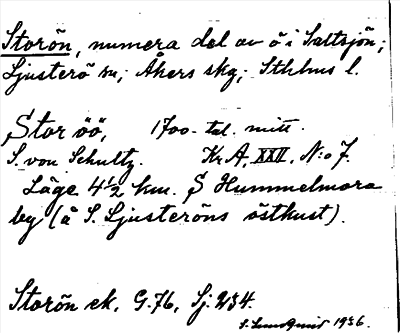 Storön, numera del av ö i Saltsjön;
Ljusterö sn; Åkers skg; Sthlms l.
Stor öö, 1700-tal. mitt
S. von Schultz. Kr A, XXII, N:o 7.
Läge 4 1/2 km. S Hummelmora
by (å S. Ljusteröns östkust).
Storön ek. G. 76, Sj. 234.
S. Lundqvist 1936.